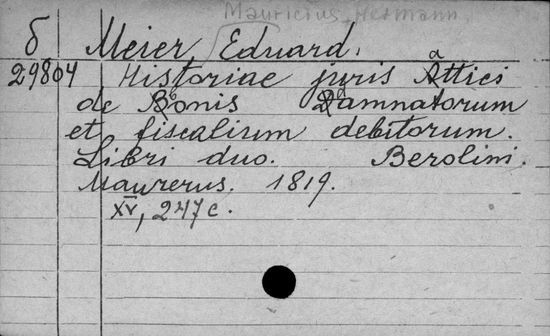 Mauricius Hermann
б Meier Eduard.
29804 Historiae juris Attici
de Bonis Damnatorum
et fiscalium debitorum.
Libri duo. Berolini.
Maurerus. 1819.
XV, 247 c.